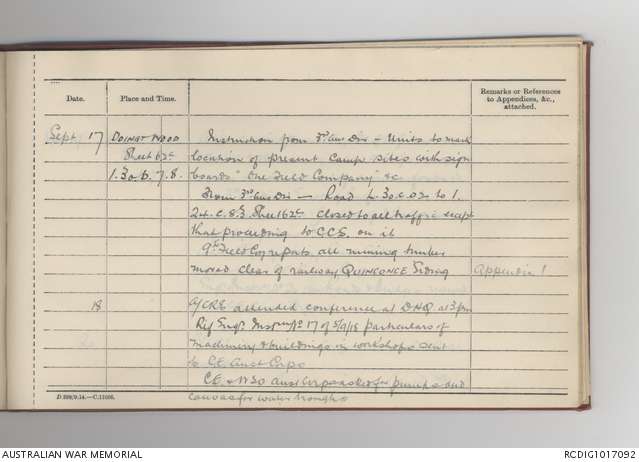 Date.
Place and Time.
Remarks or References
to Appendices, &c.,
attached.
Sept. 17 DOINGT WOOD Instruction from 3rd Aus Div - Units to mark
Sheet 62c location of present Camp sites with sign
I.30.b.7.8. boards "One Field Company" &c
From 3rd Aus Div - Road
Sheet 62c closed to all traffic except
that proceeding to C.C.S. on it
9th Field Coy reports all mining timber
moved clear of railway QUINCONCE Siding Appendix 1
18 A/CRE attended conference at DHQ at 3pm
Ref Engr. Instns No 17 of 5/9/18 particulars of
machinery & buildings in workshops sent
to C.E. Aust Corps
C.E. Aust Corps asked for pumps and
canvas for water troughs
D.298/9.14.—C.11606.
AUSTRALIAN WAR MEMORIAL
RCDIG1017092